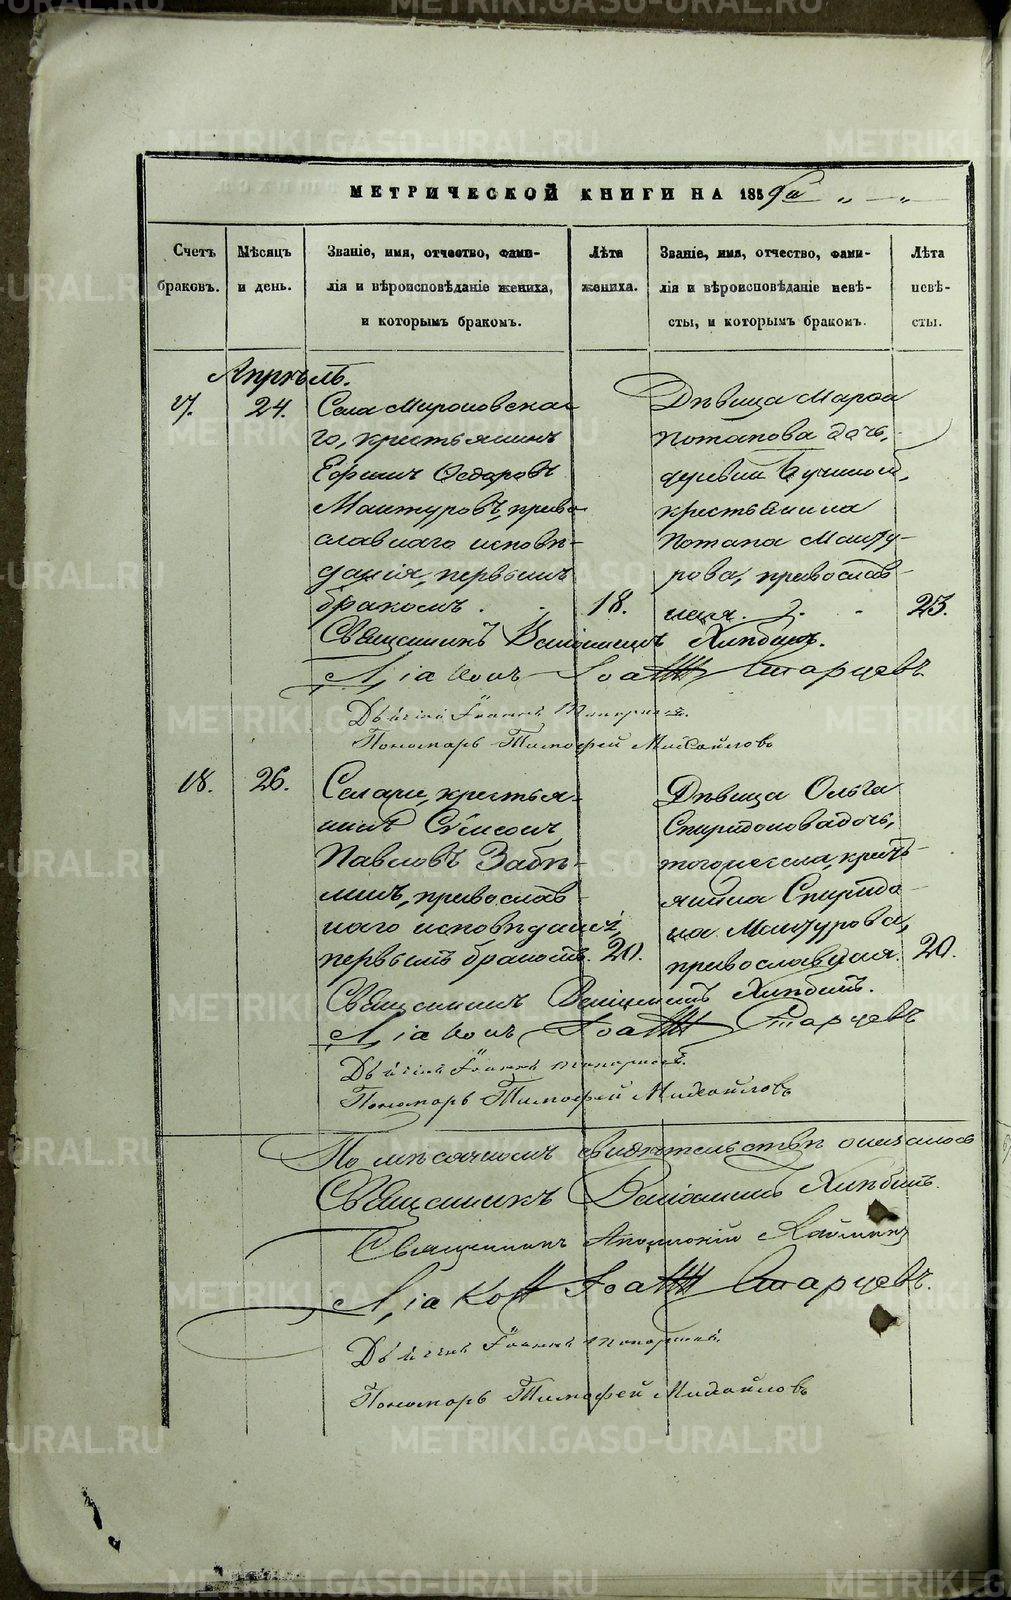 МЕТРИЧЕСКОЙ КНИГИ НА 185
Счетъ браковъ.
Мѣсяцъ и день.
Званіе, имя, отчество, фами-
лія и вѣроисповѣданіе жениха,
и которымъ бракомъ.
Лѣта жениха.
Званіе, имя, отчество, фами-
лія и вѣроисповѣданіе невѣ-
сты, и которымъ бракомъ.
Лѣта невѣ-
сты.
Апрѣль.
17.
24.
Села Мироновска-
го, крестьянинъ
Ефимъ Ѳедоровъ
Мантуровъ, право-
славнаго исповѣ-
данія, первымъ
бракомъ.
18.
Дѣвица Марѳа
Потапова дочь,
деревни
крестьянина
Потапа Манту-
рова, православ-
ная.
23.
Священникъ Веніаминъ Хлѣбинъ.
Діаконъ Іоаннъ Старцевъ
Дьячекъ Іоаннъ
Пономарь Тимофей Михайловъ
18.
26.
крестья-
нинъ Симеонъ
Павловъ Забѣ-
линъ, православ-
наго исповѣданія,
первымъ бракомъ.
20.
Дѣвица Ольга
Спиридонова дочь,
тогоже села, кресть-
янина Спиридо-
на Мантурова,
православная.
20.
Священникъ Веніаминъ Хлѣбинъ.
Діаконъ Іоаннъ Старцевъ
Дьячекъ Іоаннъ
Пономарь Тимофей Михайловъ
По мѣсячномъ свидѣтельствѣ оказалось
Священникъ Веніаминъ Хлѣбинъ.
Священникъ
Діаконъ Іоаннъ Старцевъ.
Дьячекъ Іоаннъ
Пономарь Тимофей Михайловъ
METRIKI.GASO-URAL.RU